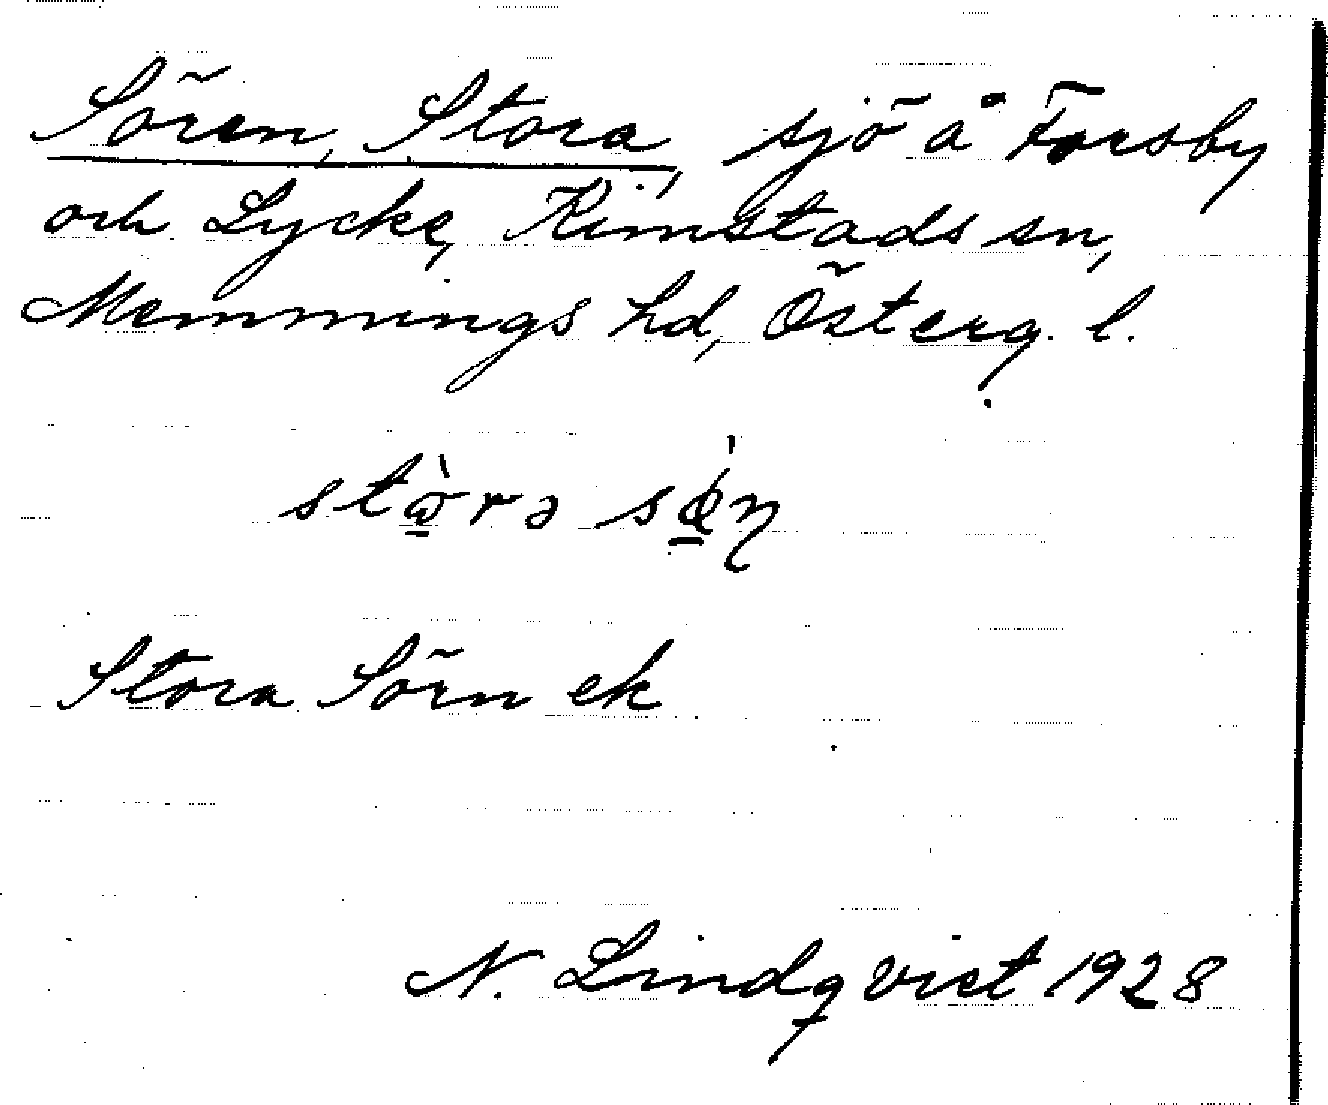 Sören, Stora, sjö å Forsby
och Lycke, Kimstads sn,
Memmings hd, Österg. l.
Stora Sörn ek
N. Lindqvist 1928